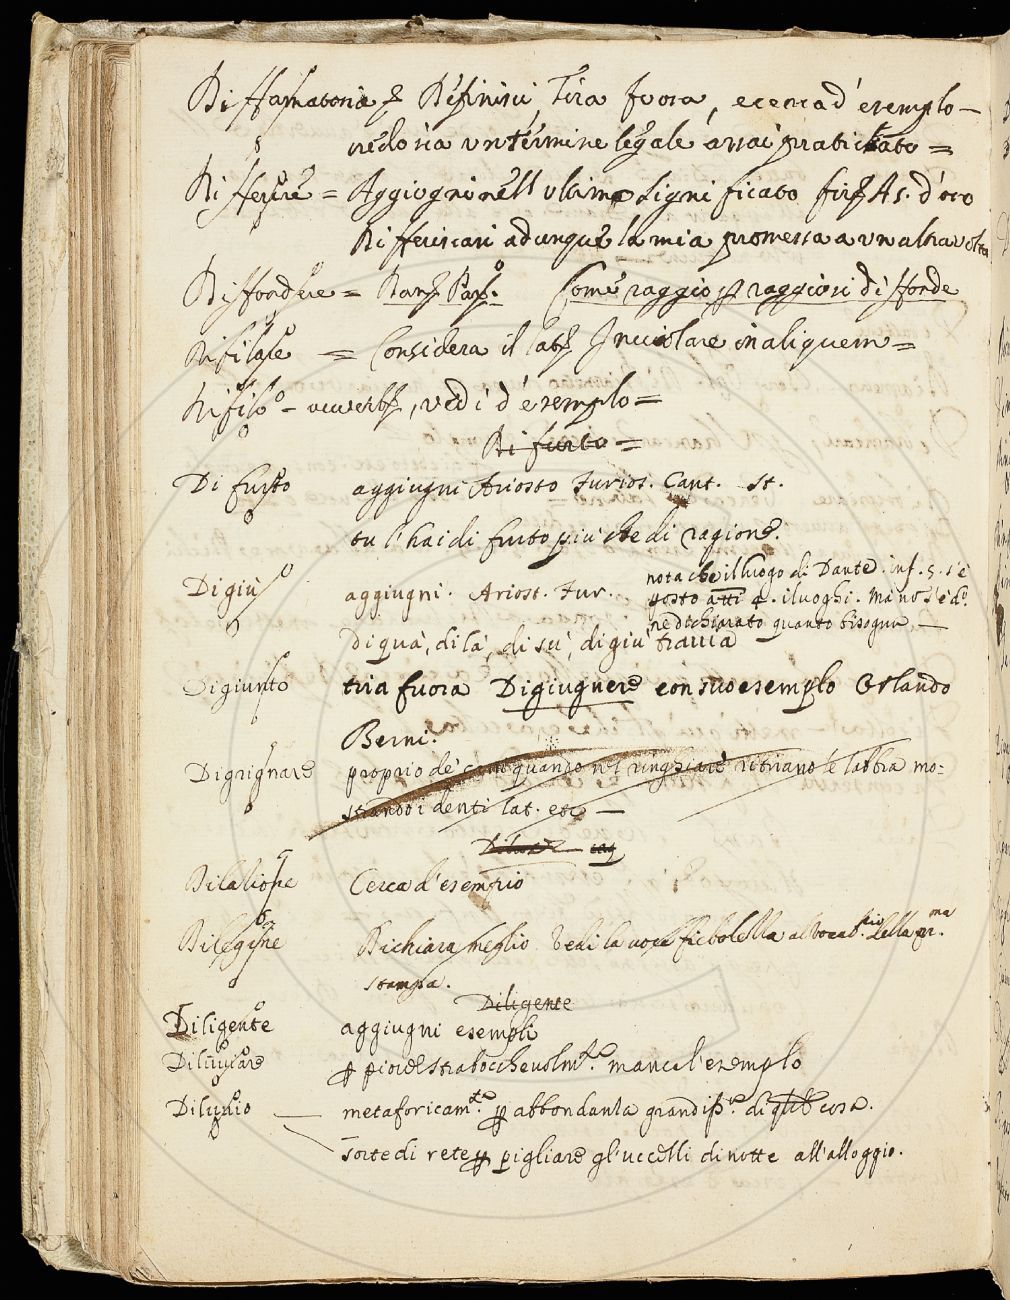 Diffamatoria Definisci, Tira fuora, e cerca d'esemplo —
credo sia un termine legale assai praticato =
Differire = Aggiogni nell' ultimo significato As. d'oro
Differiscasi adunque la mia promessa a un altra volta
Diffondere = Dant. Par. Come raggio raggiosi diffonde
Difilare = Considera il lat. Involare in aliquem =
Difilo - avverb, vedi d'esemplo =
Di furto =
Di furto aggiugni Ariosto Furios. Cant. St.
tu l'hai di furto più che di ragione.
nota che il luogo di Dante. inf. 5. s'è
Digiù aggiugni. Ariost. Fur. posto atti 4. i luoghi. Ma no s'è
ne dichiarato quanto bisogna —
Di quà, di là, di sù, di giù
Digiunto tria fuora Digiugnere con suo esemplo Orlando
Berni.
Digrignare proprio de' cani quando nel ringhiare ritirano le labbra mo=
strando i denti lat. etc —
Dilatione Cerca d'esempio
Dilegine Dichiara meglio Vedi la voce al vocab.rio della pr.ma
stampa.
Diligente
Diligente aggiugni esempli
Diluviare p piovere strabocchevolm.te manca l'esemplo
Diluvio — metaforicam.te p abbondanza grandiss.a di cosa.
Sorte di rete p pigliare gl'uccelli di notte all'alloggio.